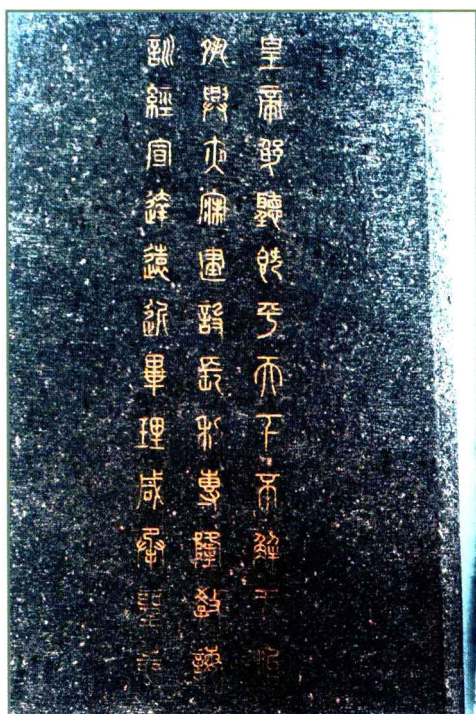 皇帝躬聽既平天下不解于治
夙興夜寐建設長利專隆教誨
訓經宣達遠近畢理咸承聖志